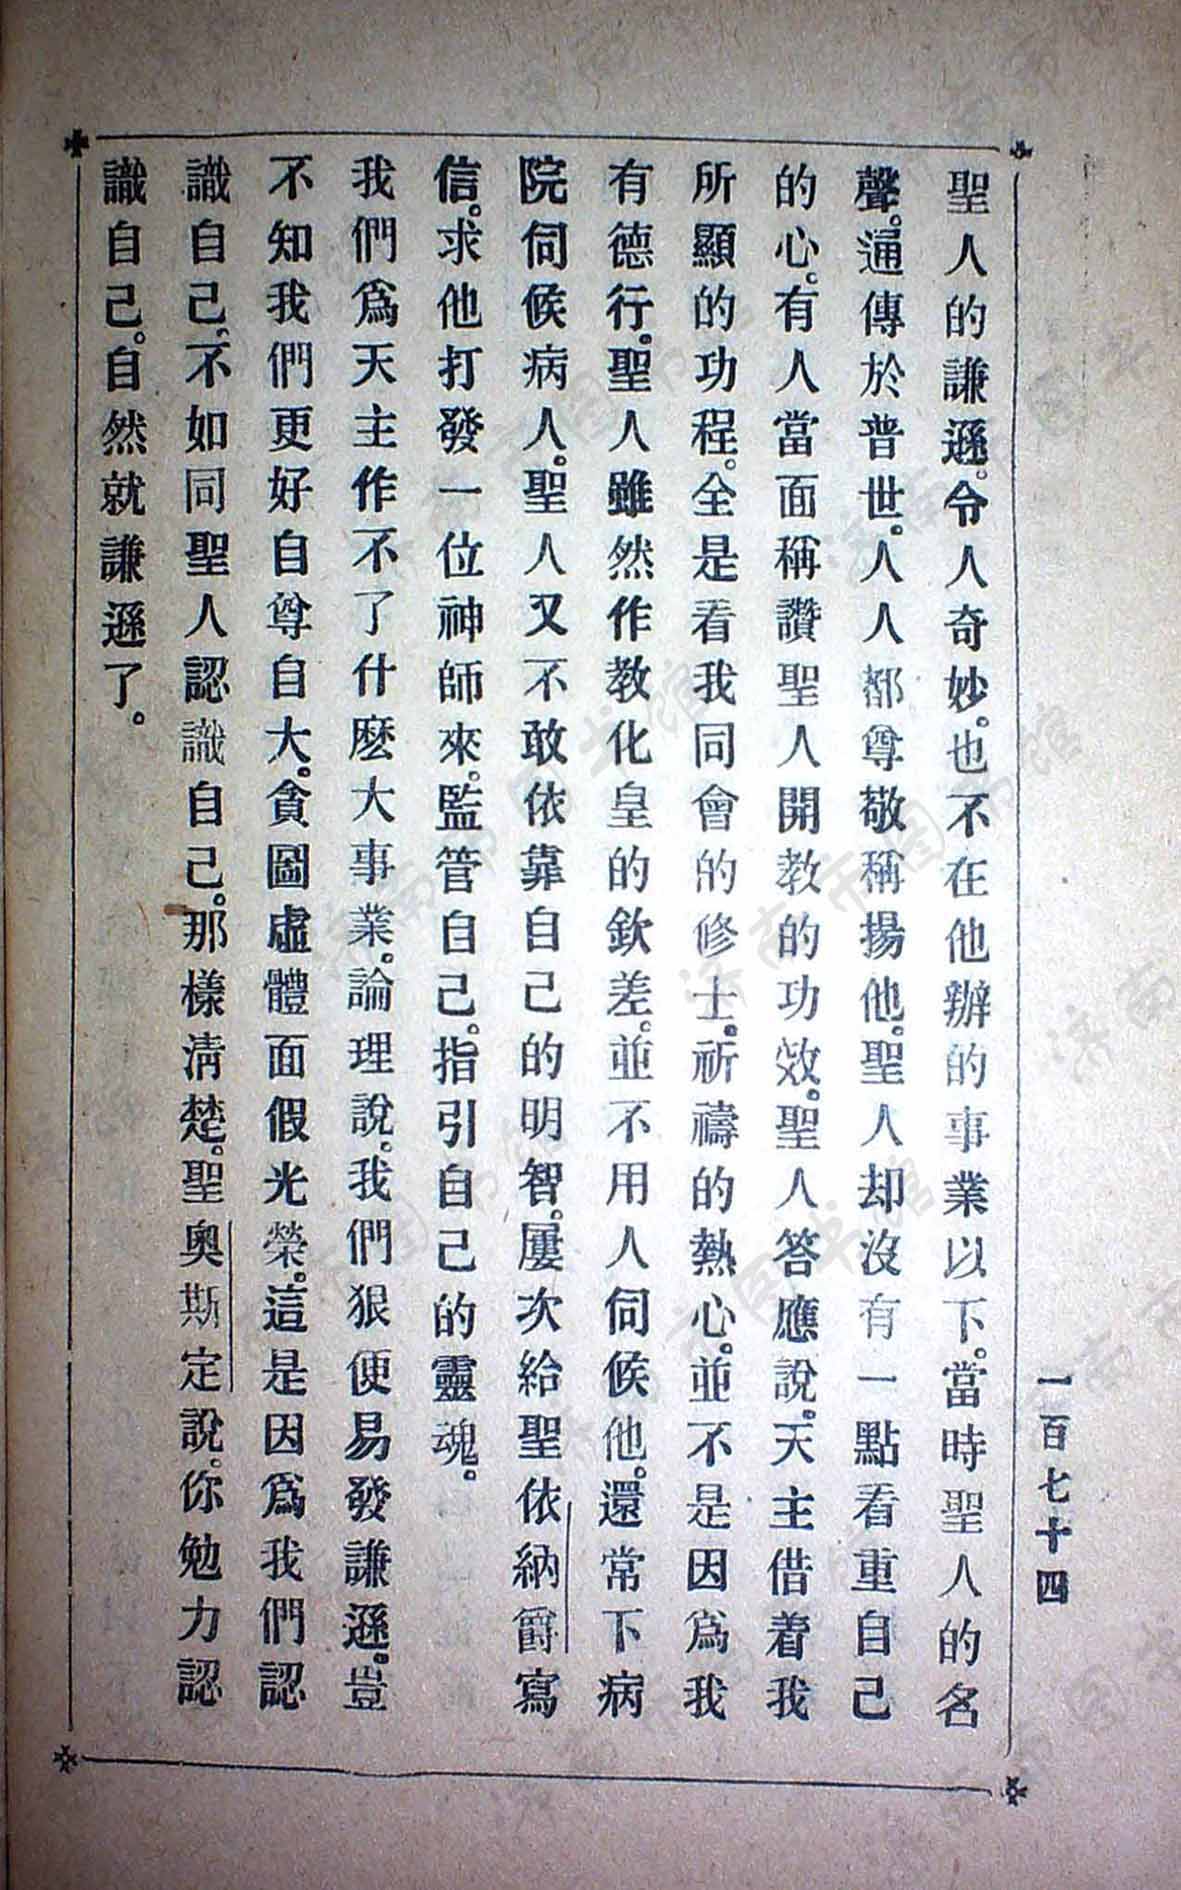 一百七十四
聖人的謙遜。令人奇妙。也不在他辦的事業以下。當時聖人的名
聲。通傳於普世。人人都尊敬稱揚他。聖人却沒有一點看重自己
的心。有人當面稱讚聖人開教的功效。聖人答應說。天主借着我
所顯的功程。全是看我同會的修士。祈禱的熱心。並不是因爲我
有德行。聖人雖然作教化皇的欽差。並不用人伺候他。還常下病
院伺候病人。聖人又不敢依靠自己的明智。屢次給聖依納爵寫
信。求他打發一位神師來。監管自己。指引自己的靈魂。
我們爲天主作不了什麽大事業。論理說。我們狠便易發謙遜。豈
不知我們更好自尊自大。貪圖虛體面假光榮。這是因爲我們認
識自己、不如同聖人認識自己。那樣淸楚。聖奧斯定說。你勉力認
識自己。自然就謙遜了。
济南市图书馆